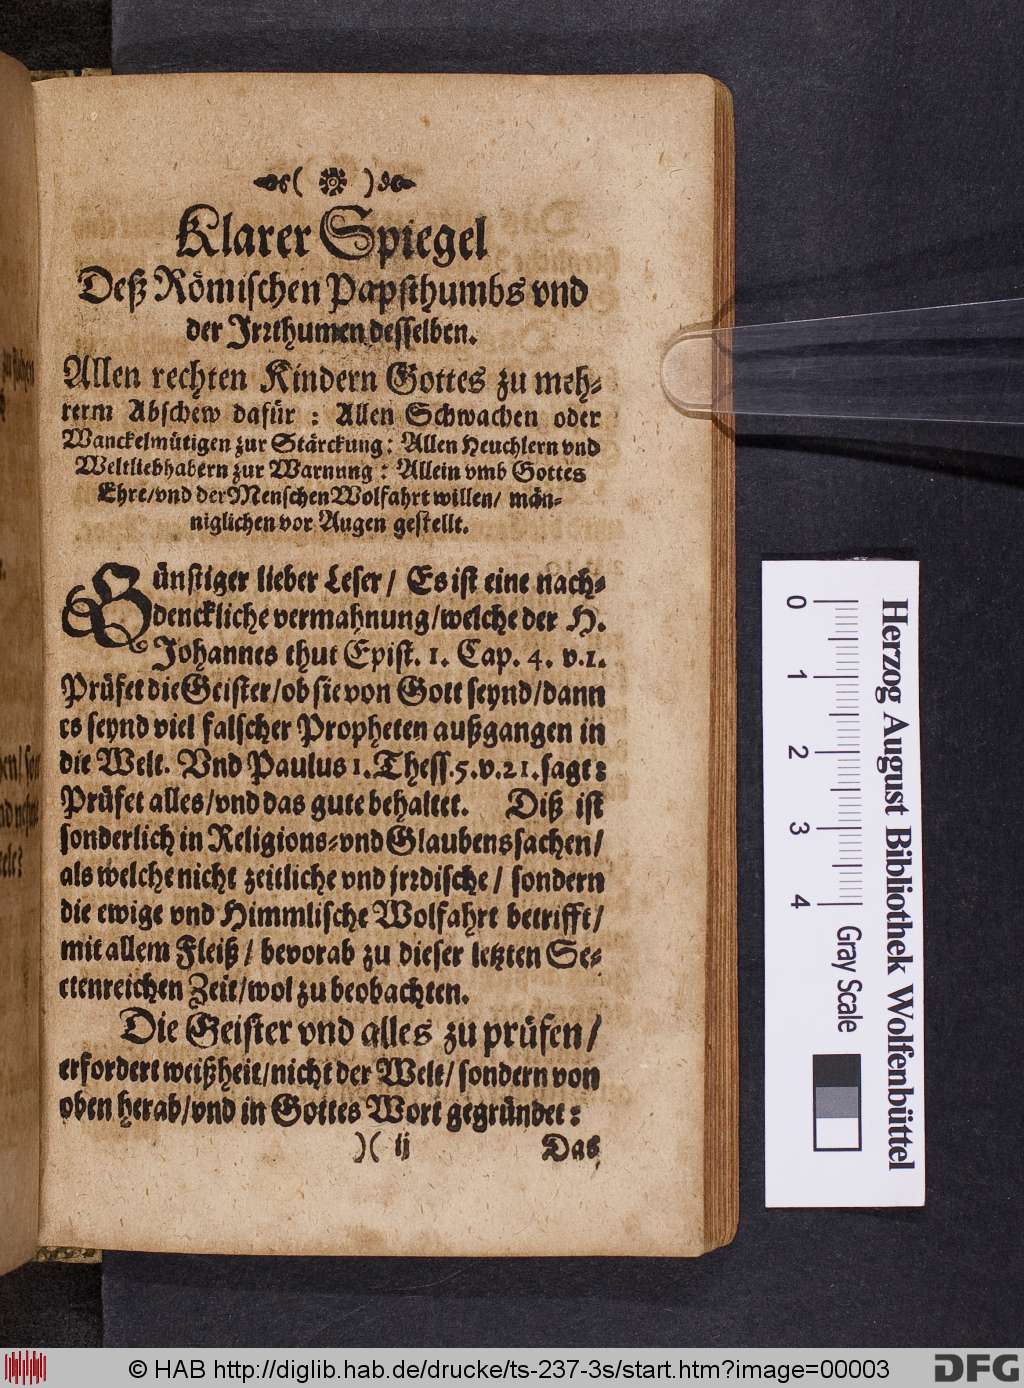 Klarer Spiegel
Deß Römischen Papsthumbs vnd
der Jrrthumen desselben.
Allen rechten Kindern Gottes zu meh-
rerm Abschew dafür: Allen Schwachen oder
Wanckelmütigen zur Stärckung: Allen Heuchlern vnd
Weltliebhabern zur Warnung: Allein vmb Gottes
Ehre/vnd der Menschen Wolfahrt willen/ män-
niglichen vor Augen gestellt.
Günstiger lieber Leser/ Es ist eine nach-
denckliche vermahnung/welche der H.
Johannes thut Epist. 1. Cap. 4. v.1.
Prüfet die Geister/ob sie von Gott seynd/dann
es seynd viel falscher Propheten außgangen in
die Welt. Vnd Paulus 1. Thess.5.v.21.sagt:
Prüfet alles/vnd das gute behaltet. Diß ist
sonderlich in Religions-vnd Glaubenssachen/
als welche nicht zeitliche vnd jrrdische/ sondern
die ewige vnd Himmlische Wolfahrt betrifft/
mit allem Fleiß/ bevorab zu dieser letzten Se-
ctenreichen Zeit/wol zu beobachten.
Die Geister vnd alles zu prüfen/
erfordert weißheit/nicht der Welt/ sondern von
oben herab/vnd in Gottes Wort gegründet:
)( ij Das
0 1 2 3 4
Gray Scale
Herzog August Bibliothek Wolfenbüttel
© HAB http://diglib.hab.de/drucke/ts-237-3s/start.htm?image=00003
DFG